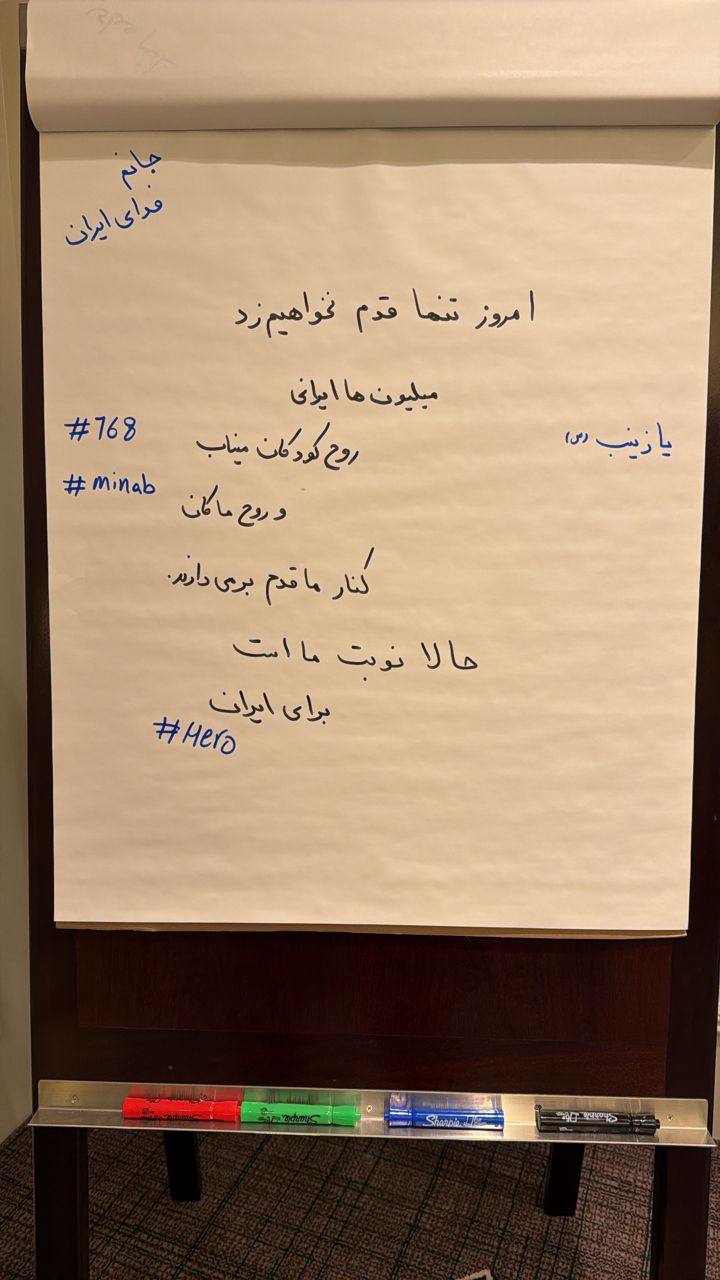 جانم
فدای ایران
امروز تنها قدم نخواهیم زد
میلیون ها ایرانی
#768
روح کودکان میناب
یا زینب (س)
#minab
و روح ماکان
کنار ما قدم برمی دارند.
حالا نوبت ما است
برای ایران
#Hero
Sharpie
Sharpie
Sharpie
Sharpie